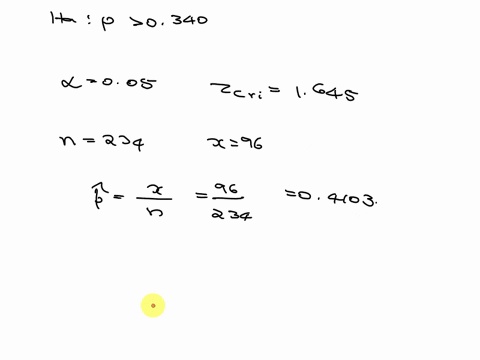 Ha : p > 0.340
α = 0.05 Zcri = 1.645
n = 234 x = 96
p̂ = x/n = 96/234 = 0.4103.